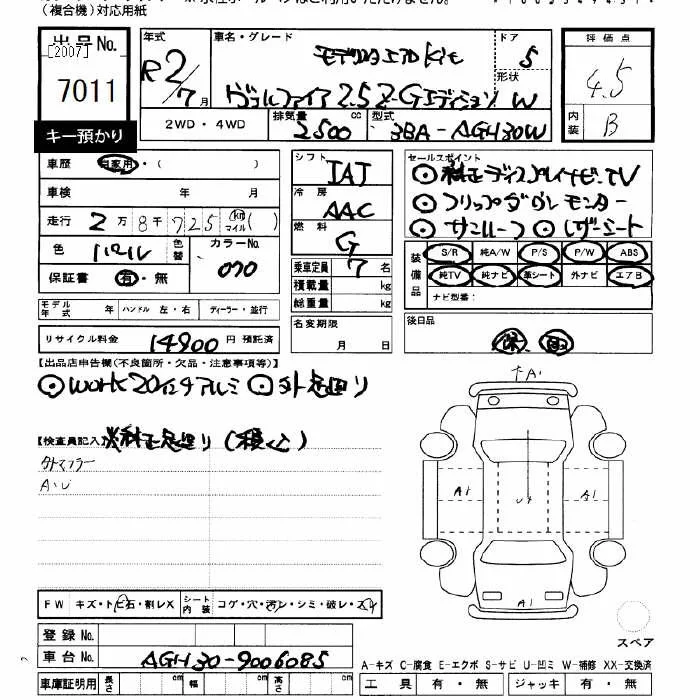 (複合機)対応用紙
出品No.
[2007]
7011
キー預かり
年式
R2/7月
車名・グレード
モデリスタエアロKit
ヴェルファイア 2.5 Z-Gエディション
ドア
5
形状
W
評価点
4.5
内装
B
2WD・4WD
排気量
2500 cc
型式
3BA-AGH30W
車歴 自家用・( )
車検 年 月
走行 2万8千725 km マイル ( )
色 パール
色替
カラーNo.
070
保証書 有・無
モデル年式 年 ハンドル 左・右 ディーラー・並行
リサイクル料金 14900 円 預託済
シフト
IAT
冷房
AAC
燃料
G
乗車定員 7 名
積載量 kg
総重量 kg
名変期限
月 日
セールスポイント
◎純正ディスプレイナビ・TV
◎フリップダウンモニター
◎サンルーフ ◎レザーシート
装備品
S/R 純A/W P/S P/W ABS
純TV 純ナビ 革シート 外ナビ エアB
ナビ型番:
後日品
保 取
【出品店申告欄(不良箇所・欠品・注意事項等)】
◎WORK20インチアルミ ◎外足廻り
【検査員記入】
※純正足廻り(積込)
外マフラー
A・U
FW キズ・トビ石・割レX
シート内装 コゲ・穴・汚レ・シミ・破レ・スレ
登録No.
車台No. AGH30-9006085
車庫証明用 長さ cm 幅 cm 高さ cm
↑A1
A1
U4
A1
A1
スペア
A-キズ C-腐食 E-エクボ S-サビ U-凹ミ W-補修 XX-交換済
工具 有・無 ジャッキ 有・無